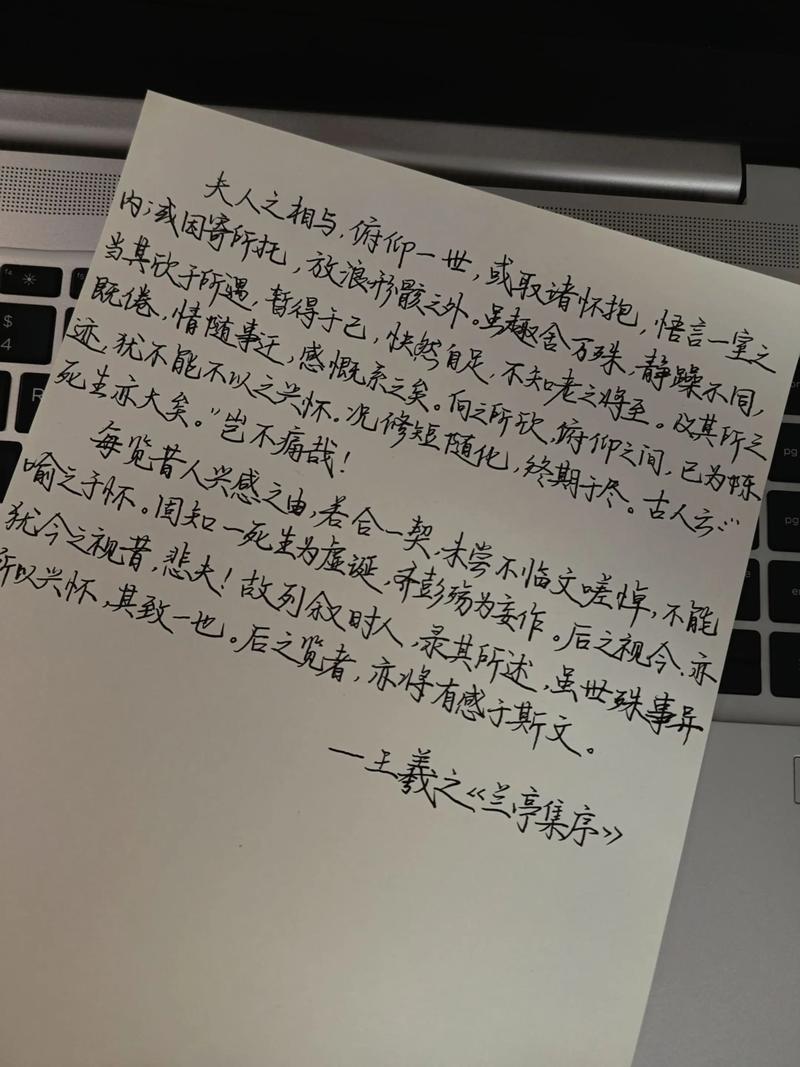 夫人之相与，俯仰一世，或取诸怀抱，悟言一室之
内；或因寄所托，放浪形骸之外。虽趣舍万殊，静躁不同，
当其欣于所遇，暂得于己，快然自足，不知老之将至。及其所之
既倦，情随事迁，感慨系之矣。向之所欣，俯仰之间，已为陈
迹，犹不能不以之兴怀。况修短随化，终期于尽。古人云：“
死生亦大矣。”岂不痛哉！
每览昔人兴感之由，若合一契，未尝不临文嗟悼，不能
喻之于怀。固知一死生为虚诞，齐彭殇为妄作。后之视今，亦
犹今之视昔，悲夫！故列叙时人，录其所述，虽世殊事异
所以兴怀，其致一也。后之览者，亦将有感于斯文。
—王羲之《兰亭集序》
$
4
R
pg
pg